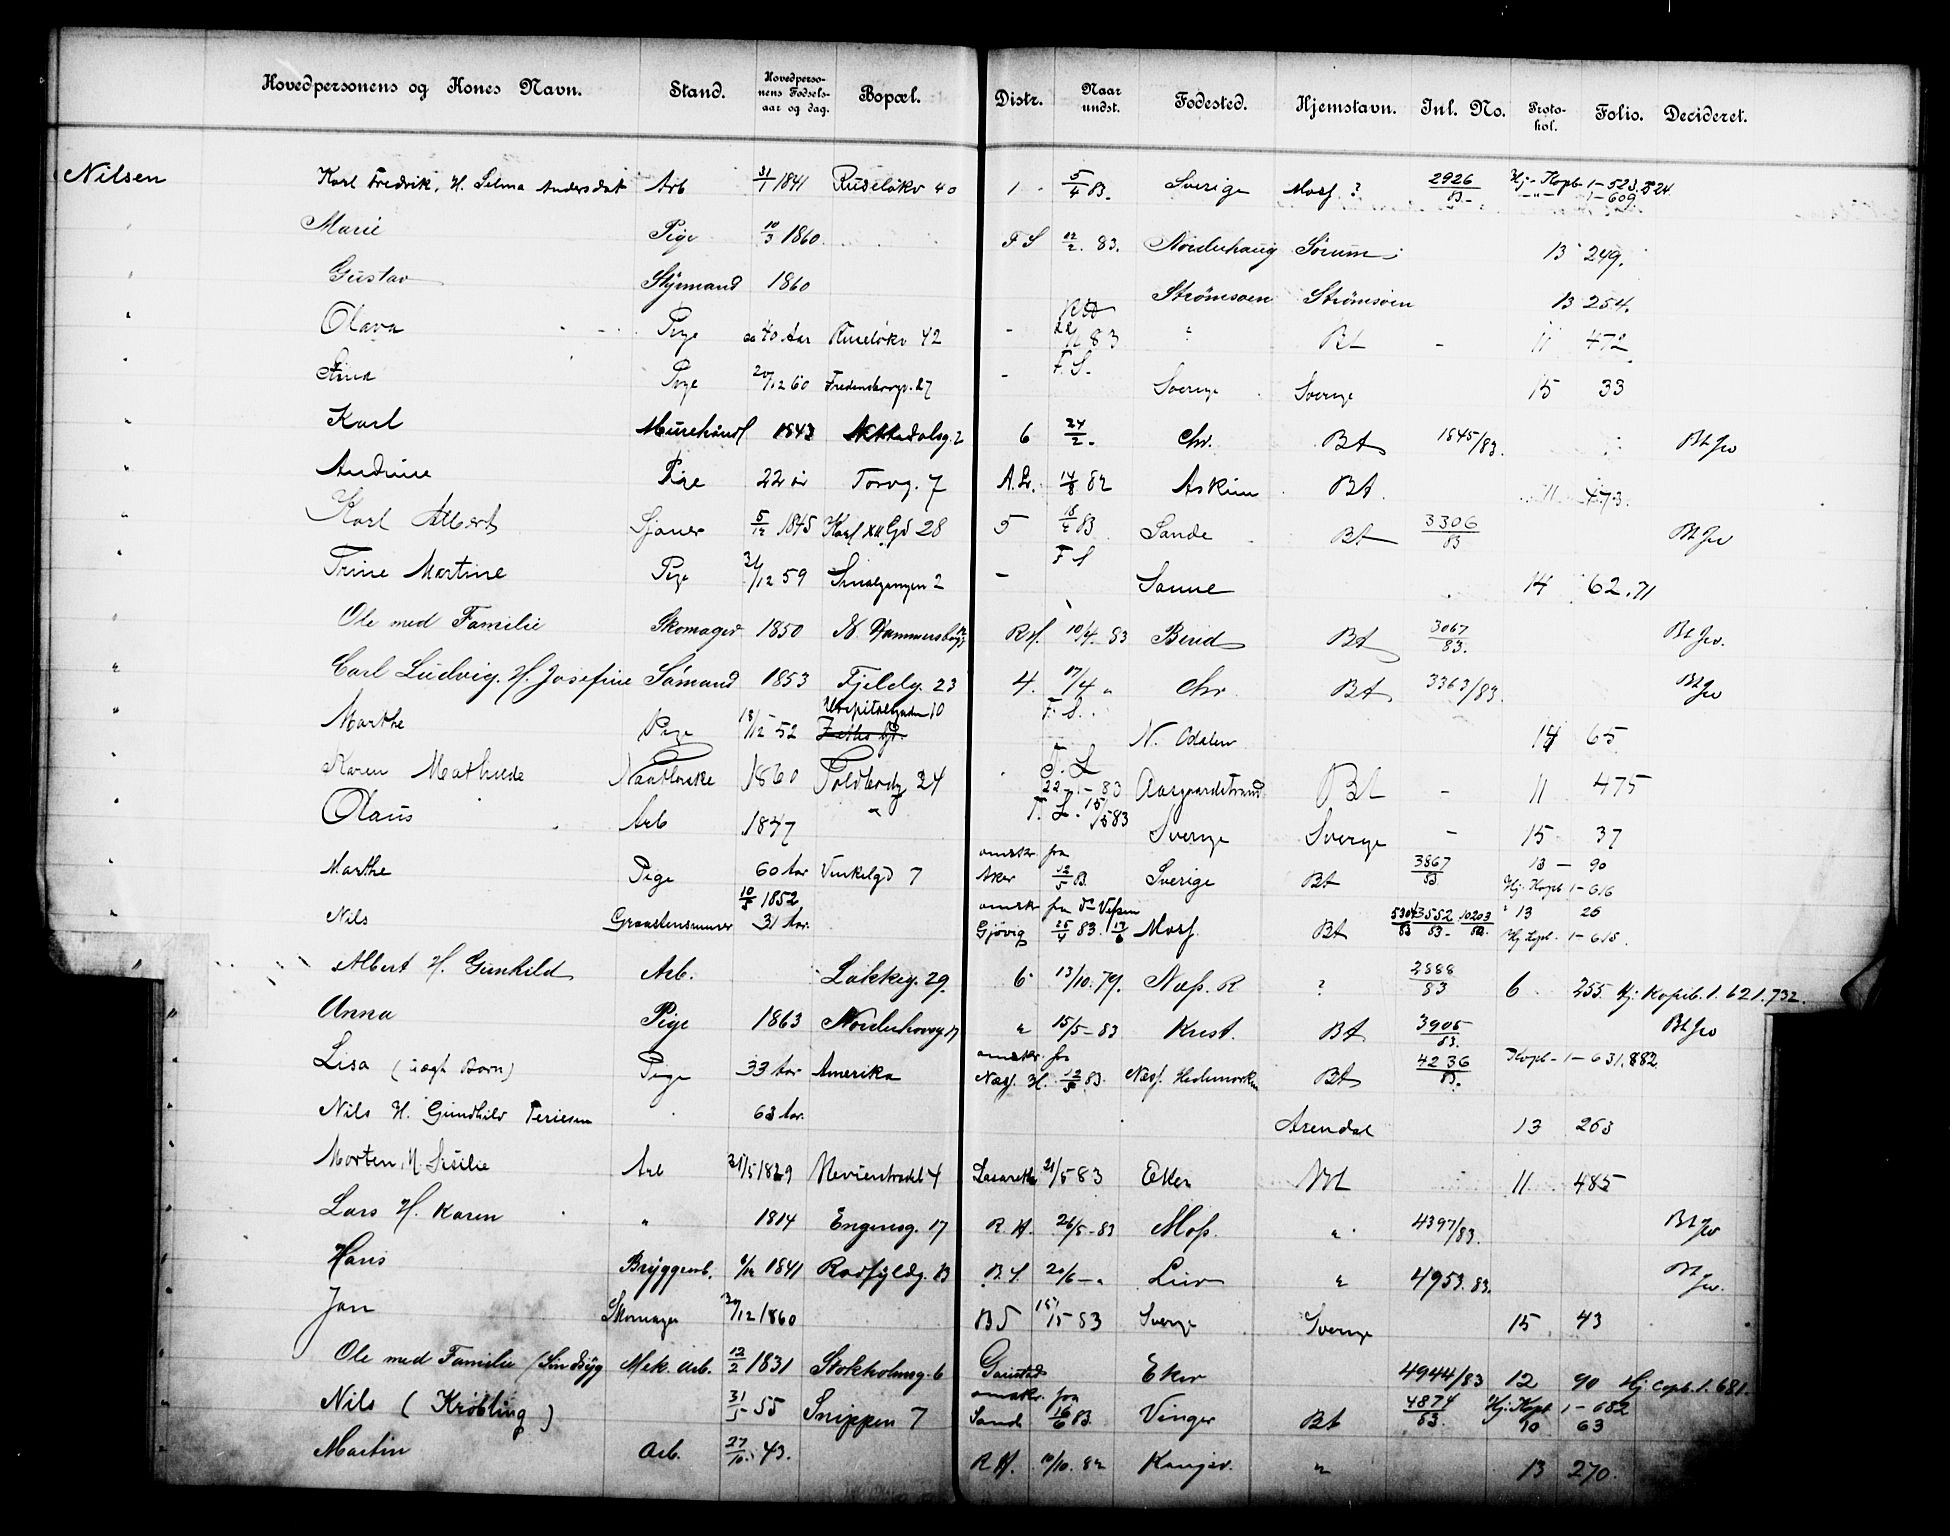 Hovedpersonens og Kones Navn. Stand. Hovedpersonens Fødselsaar og dag. Bopæl. Distr. Naar undst. Fødested. Hjemstavn. Inl. No. Protokol. Folio. Decideret.
Nilsen Karl Fredrik, H. Selma Andersdat Arb 31/1 1841 Ruseløkv 40 1 5/4 83. Sverige Moss ? 2926/83.- Hj-Kopb 1-523.524
1-609
" Marie Pige 10/3 1860 F S 12/2 83. Norderhaug Sørum 13 249.
" Gustav Styrmand 1860 Strømsøen Strømsøen 13 254.
" Olava Pige ca 40 Aar Ruseløkv 42 - 22/1 83 " Bt - 11 472
" Pige 20/12 60 Fredensborgv. 27 - F. S. Sverge Sverge 15 33
" Karl Murehaandl 1843 2 6 24/2 - Chr. Bt 1845/83. Bt Jw
" Andrine Pige 22 år Torvg. 7 14/8 82 Askim Bt 11 473.
" Karl Albert Sjauer 5/12 1845 Karl XII Gd 28 5 18/4 83 Sande Bt 3306/83 Bt Jw
" Trine Martine Pige 12 59 Smalgangen 2 - F S Sanne 14 62.71
" Ole med Familie Skomager 1850 N. Hammersborgg R.H. 10/4 83 Bt 3067/83. Bt Jw.
" Carl Ludvig. H. Josefine Sømand 1853 Fjeldg. 23 4. 17/4 " Chr. Bt 3363/83. Bt Jw
" Marthe Pige 18/12 52 Hospitalgaden 10 F. S. N. Odalen 14 65
" Karen Mathilde 1860 Toldbodg 24 22-1-83 Aasgaardstrand Bt - 11 475
" Olaus Arb 1847 " 15/5 83 Sverge Sverge - 15 37
" Marthe Pige 60 Aar Vinkelgd 7 omskr. fra Aker 12/5 83. Sverige Bt 3867/83 13 - 90
Hj. Kopb 1-616
" Nils Graastensmurer 10/5 1852 31 Aar. omskr fra Vefsen Gjøvig 25/4 83. Moss Bt 3552/83.- 10203/82. " 13 26
Hj Kopb. 1-615.
Albert H. Gunhild Arb. Løkkeg. 29. 6 13/10. 79. Næss. R ? 2888/83 6 255. Hj. Kopib. 1. 621.732.
" Anna Pige 1863 Norderhovsg. 17 " 15/5-83 Krist. Bt 3905/83. Bt Jw
" Lisa ( uægt Barn) Pige 33 Aar Amerika omskr. fra Næss. H. 12/5 83. Næss. Hedemarken Bt 4236/83. Kopb- 1-631.882
" Nils H. Gundhild Teriesen 63 Aar. Arendal 13 263
" Morten, H. Sisilie Arb 5 1829 4 Lasareth 21/5 83 Eker Bt 11 485
" Lars H. Karen " 1814 Engensg. 17 R. H. 26/5-83 Moss. " 4397/83. Bt Jw
" Hans Bryggearb. 6/12 1841 Rodfyldg. 13 B. S. 20/6-" Lier " 4953.83. Bt Jw.
" Jan Skomager 12 1860 B S 15 83 Sverge Sverge 15 43
" Ole med Familie (Sindsyg Mek. Arb. 12/2 1831 Stokholmsg. 6 Gaustad Eker 4944/83 12 90 Hj Copb. 1. 681.
" Nils ( Krøbling ) 31/5 55 Snippen 7 omskr. fra Sand 16/6 83. Vinger Bt 4874/83. Hj. Kopb 1-682
10 63
" Martin Arb. 27/10. 43. R. H. 10/10. 82 Kongsv. " 13 270.